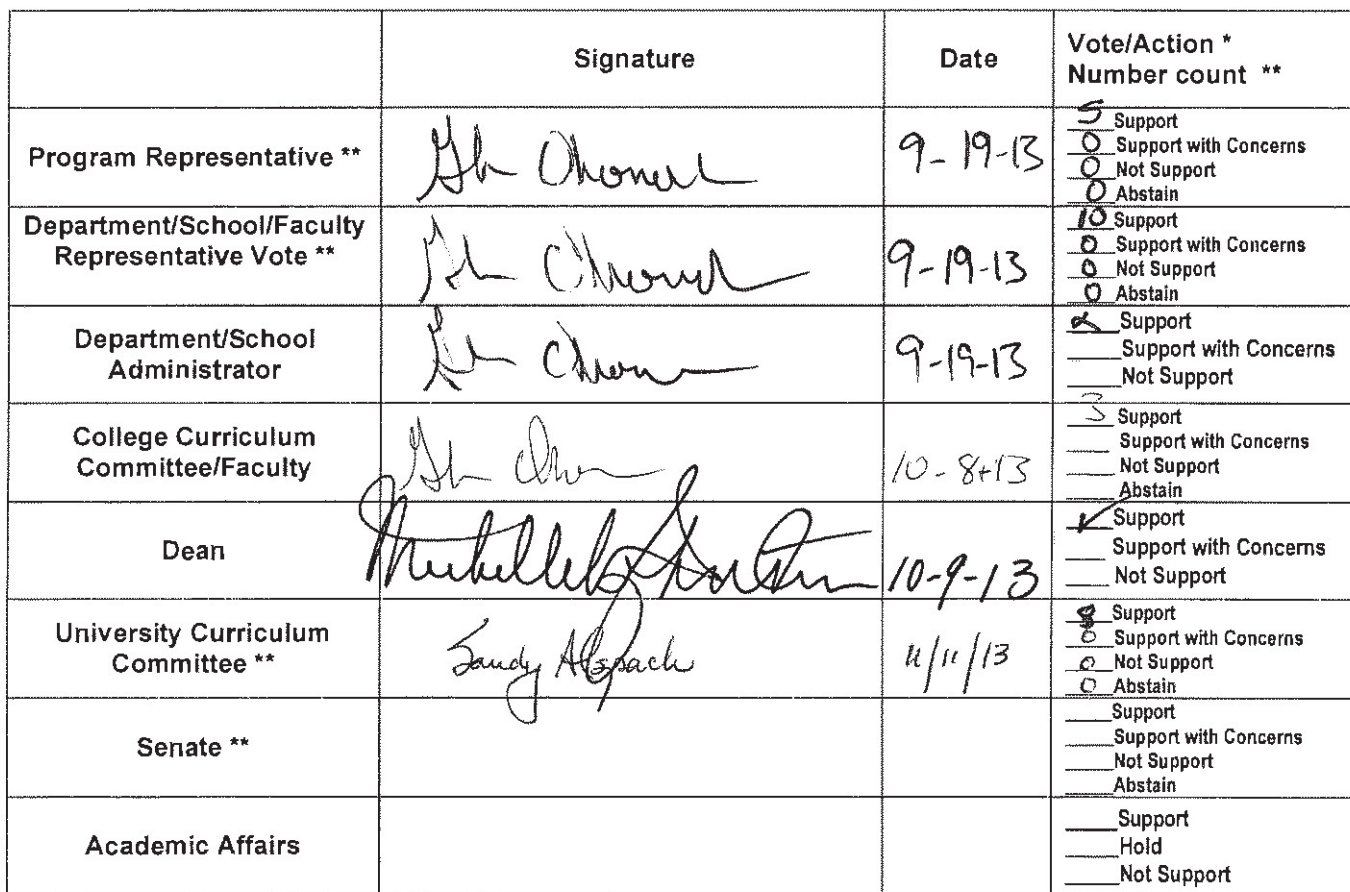 Signature
Date
Vote/Action *
Number count **
Program Representative **
9-19-13
5 Support
0 Support with Concerns
0 Not Support
0 Abstain
Department/School/Faculty
Representative Vote **
9-19-13
10 Support
0 Support with Concerns
0 Not Support
0 Abstain
Department/School
Administrator
9-19-13
Support
Support with Concerns
Not Support
College Curriculum
Committee/Faculty
10-8-13
3 Support
Support with Concerns
Not Support
Abstain
Dean
10-9-13
Support
Support with Concerns
Not Support
University Curriculum
Committee **
Sandy Alspach
11/11/13
8 Support
0 Support with Concerns
0 Not Support
0 Abstain
Senate **
Support
Support with Concerns
Not Support
Abstain
Academic Affairs
Support
Hold
Not Support